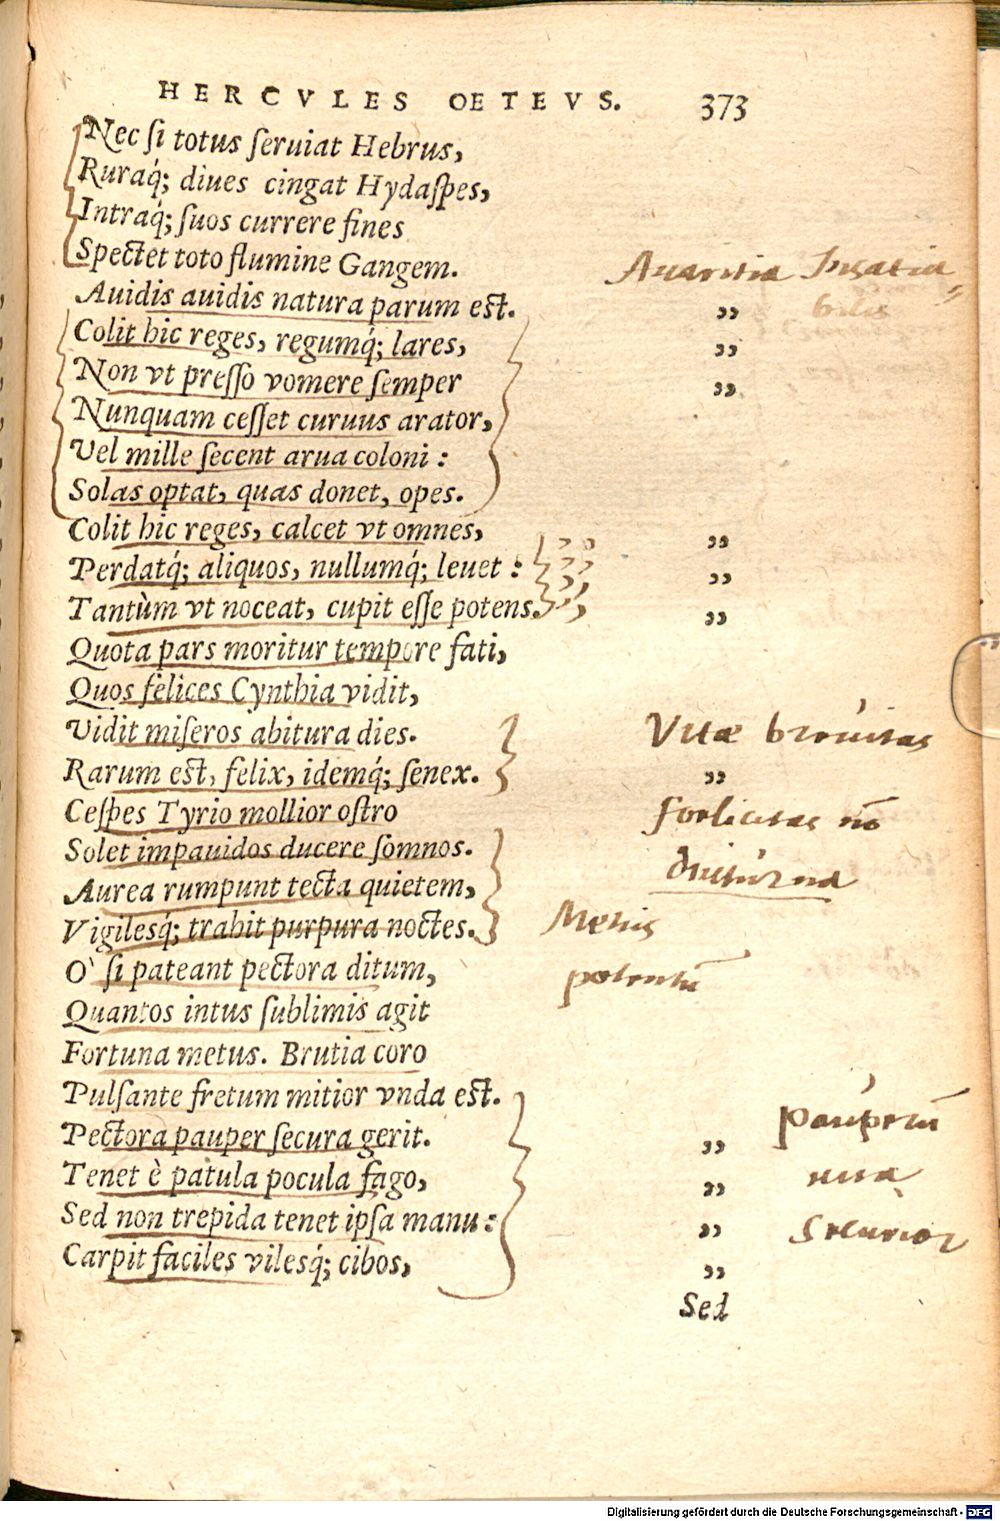 HERCVLES OETEVS. 373
Nec ſi totus ſeruiat Hebrus,
Ruraq́; diues cingat Hydaſpes,
Intraq́; ſuos currere fines
Spectet toto flumine Gangem.
Auaritia Insatia
Auidis auidis natura parum est. „
bilis
Colit hic reges, regumq́; lares, „
Non vt preſſo vomere ſemper „
Nunquam ceſſet curuus arator,
Vel mille ſecent arua coloni :
Solas optat, quas donet, opes.
Colit hic reges, calcet vt omnes, „
Perdatq́; aliquos, nullumq́; leuet : „
Tantùm vt noceat, cupit eſſe potens. „
Quota pars moritur tempore fati,
Quos felices Cynthia vidit,
Vidit miſeros abitura dies.
Vitæ breuitas
Rarum est, felix, idemq́; ſenex. „
Ceſpes Tyrio mollior oſtro
foelicitas nō
Solet impauidos ducere ſomnos.
diuturna
Aurea rumpunt tecta quietem,
Vigilesq́; trahit purpura noctes.
Metus
O` ſi pateant pectora ditum,
potentū
Quantos intus ſublimis agit
Fortuna metus. Brutia coro
Pulſante fretum mitior vnda est.
pauperū
Pectora pauper ſecura gerit. „
Tenet è patula pocula fago, „
uita
Sed non trepida tenet ipſa manu : „
securior
Carpit faciles vilesq́; cibos, „
Sed
Digitalisierung gefördert durch die Deutsche Forschungsgemeinschaft - DFG